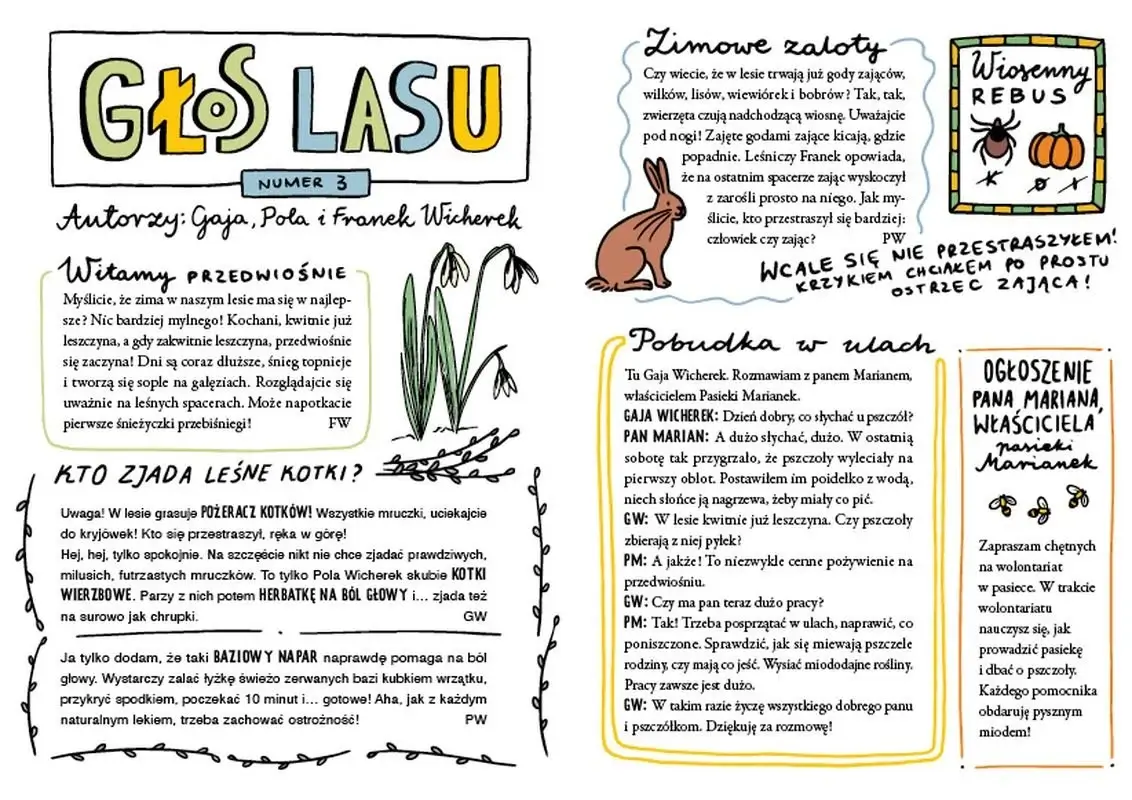 GŁOS LASU
NUMER 3
Autorzy: Gaja, Pola i Franek Wicherek
Witamy PRZEDWIOŚNIE
Myślicie, że zima w naszym lesie ma się w najlep-
sze? Nic bardziej mylnego! Kochani, kwitnie już
leszczyna, a gdy zakwitnie leszczyna, przedwiośnie
się zaczyna! Dni są coraz dłuższe, śnieg topnieje
i tworzą się sople na gałęziach. Rozglądajcie się
uważnie na leśnych spacerach. Może napotkacie
pierwsze śnieżyczki przebiśniegi! FW
KTO ZJADA LEŚNE KOTKI?
Uwaga! W lesie grasuje POŻERACZ KOTKÓW! Wszystkie mruczki, uciekajcie
do kryjówek! Kto się przestraszył, ręka w górę!
Hej, hej, tylko spokojnie. Na szczęście nikt nie chce zjadać prawdziwych,
milusich, futrzastych mruczków. To tylko Pola Wicherek skubie KOTKI
WIERZBOWE. Parzy z nich potem HERBATKĘ NA BÓL GŁOWY i... zjada też
na surowo jak chrupki. GW
Ja tylko dodam, że taki BAZIOWY NAPAR naprawdę pomaga na ból
głowy. Wystarczy zalać łyżkę świeżo zerwanych bazi kubkiem wrzątku,
przykryć spodkiem, poczekać 10 minut i... gotowe! Aha, jak z każdym
naturalnym lekiem, trzeba zachować ostrożność! PW
Zimowe zaloty
Czy wiecie, że w lesie trwają już gody zajęcy,
wilków, lisów, wiewiórek i bobrów? Tak, tak,
zwierzęta czują nadchodzącą wiosnę. Uważajcie
pod nogi! Zajęte godami zające kicają, gdzie
popadnie. Leśniczy Franek opowiada,
że na ostatnim spacerze zając wyskoczył
z zarośli prosto na niego. Jak my-
ślicie, kto przestraszył się bardziej:
człowiek czy zając? PW
WCALE SIĘ NIE PRZESTRASZYŁEM!
KRZYKIEM CHCIAŁEM PO PROSTU
OSTRZEC ZAJĄCA!
Wiosenny
REBUS
K O I
Pobudka w ulach
Tu Gaja Wicherek. Rozmawiam z panem Marianem,
właścicielem Pasieki Marianek.
GAJA WICHEREK: Dzień dobry, co słychać u pszczół?
PAN MARIAN: A dużo słychać, dużo. W ostatnią
sobotę tak przygrzało, że pszczoły wyleciały na
pierwszy oblot. Postawiłem im poidełko z wodą,
niech słońce ją nagrzewa, żeby miały co pić.
GW: W lesie kwitnie już leszczyna. Czy pszczoły
zbierają z niej pyłek?
PM: A jakże! To niezwykle cenne pożywienie na
przedwiośniu.
GW: Czy ma pan teraz dużo pracy?
PM: Tak! Trzeba posprzątać w ulach, naprawić, co
poniszczone. Sprawdzić, jak się miewają pszczele
rodziny, czy mają co jeść. Wysiać miododajne rośliny.
Pracy zawsze jest dużo.
GW: W takim razie życzę wszystkiego dobrego panu
i pszczółkom. Dziękuję za rozmowę!
OGŁOSZENIE
PANA MARIANA,
WŁAŚCICIELA
pasieki
Marianek
Zapraszam chętnych
na wolontariat
w pasiece. W trakcie
wolontariatu
nauczysz się, jak
prowadzić pasiekę
i dbać o pszczoły.
Każdego pomocnika
obdaruję pysznym
miodem!